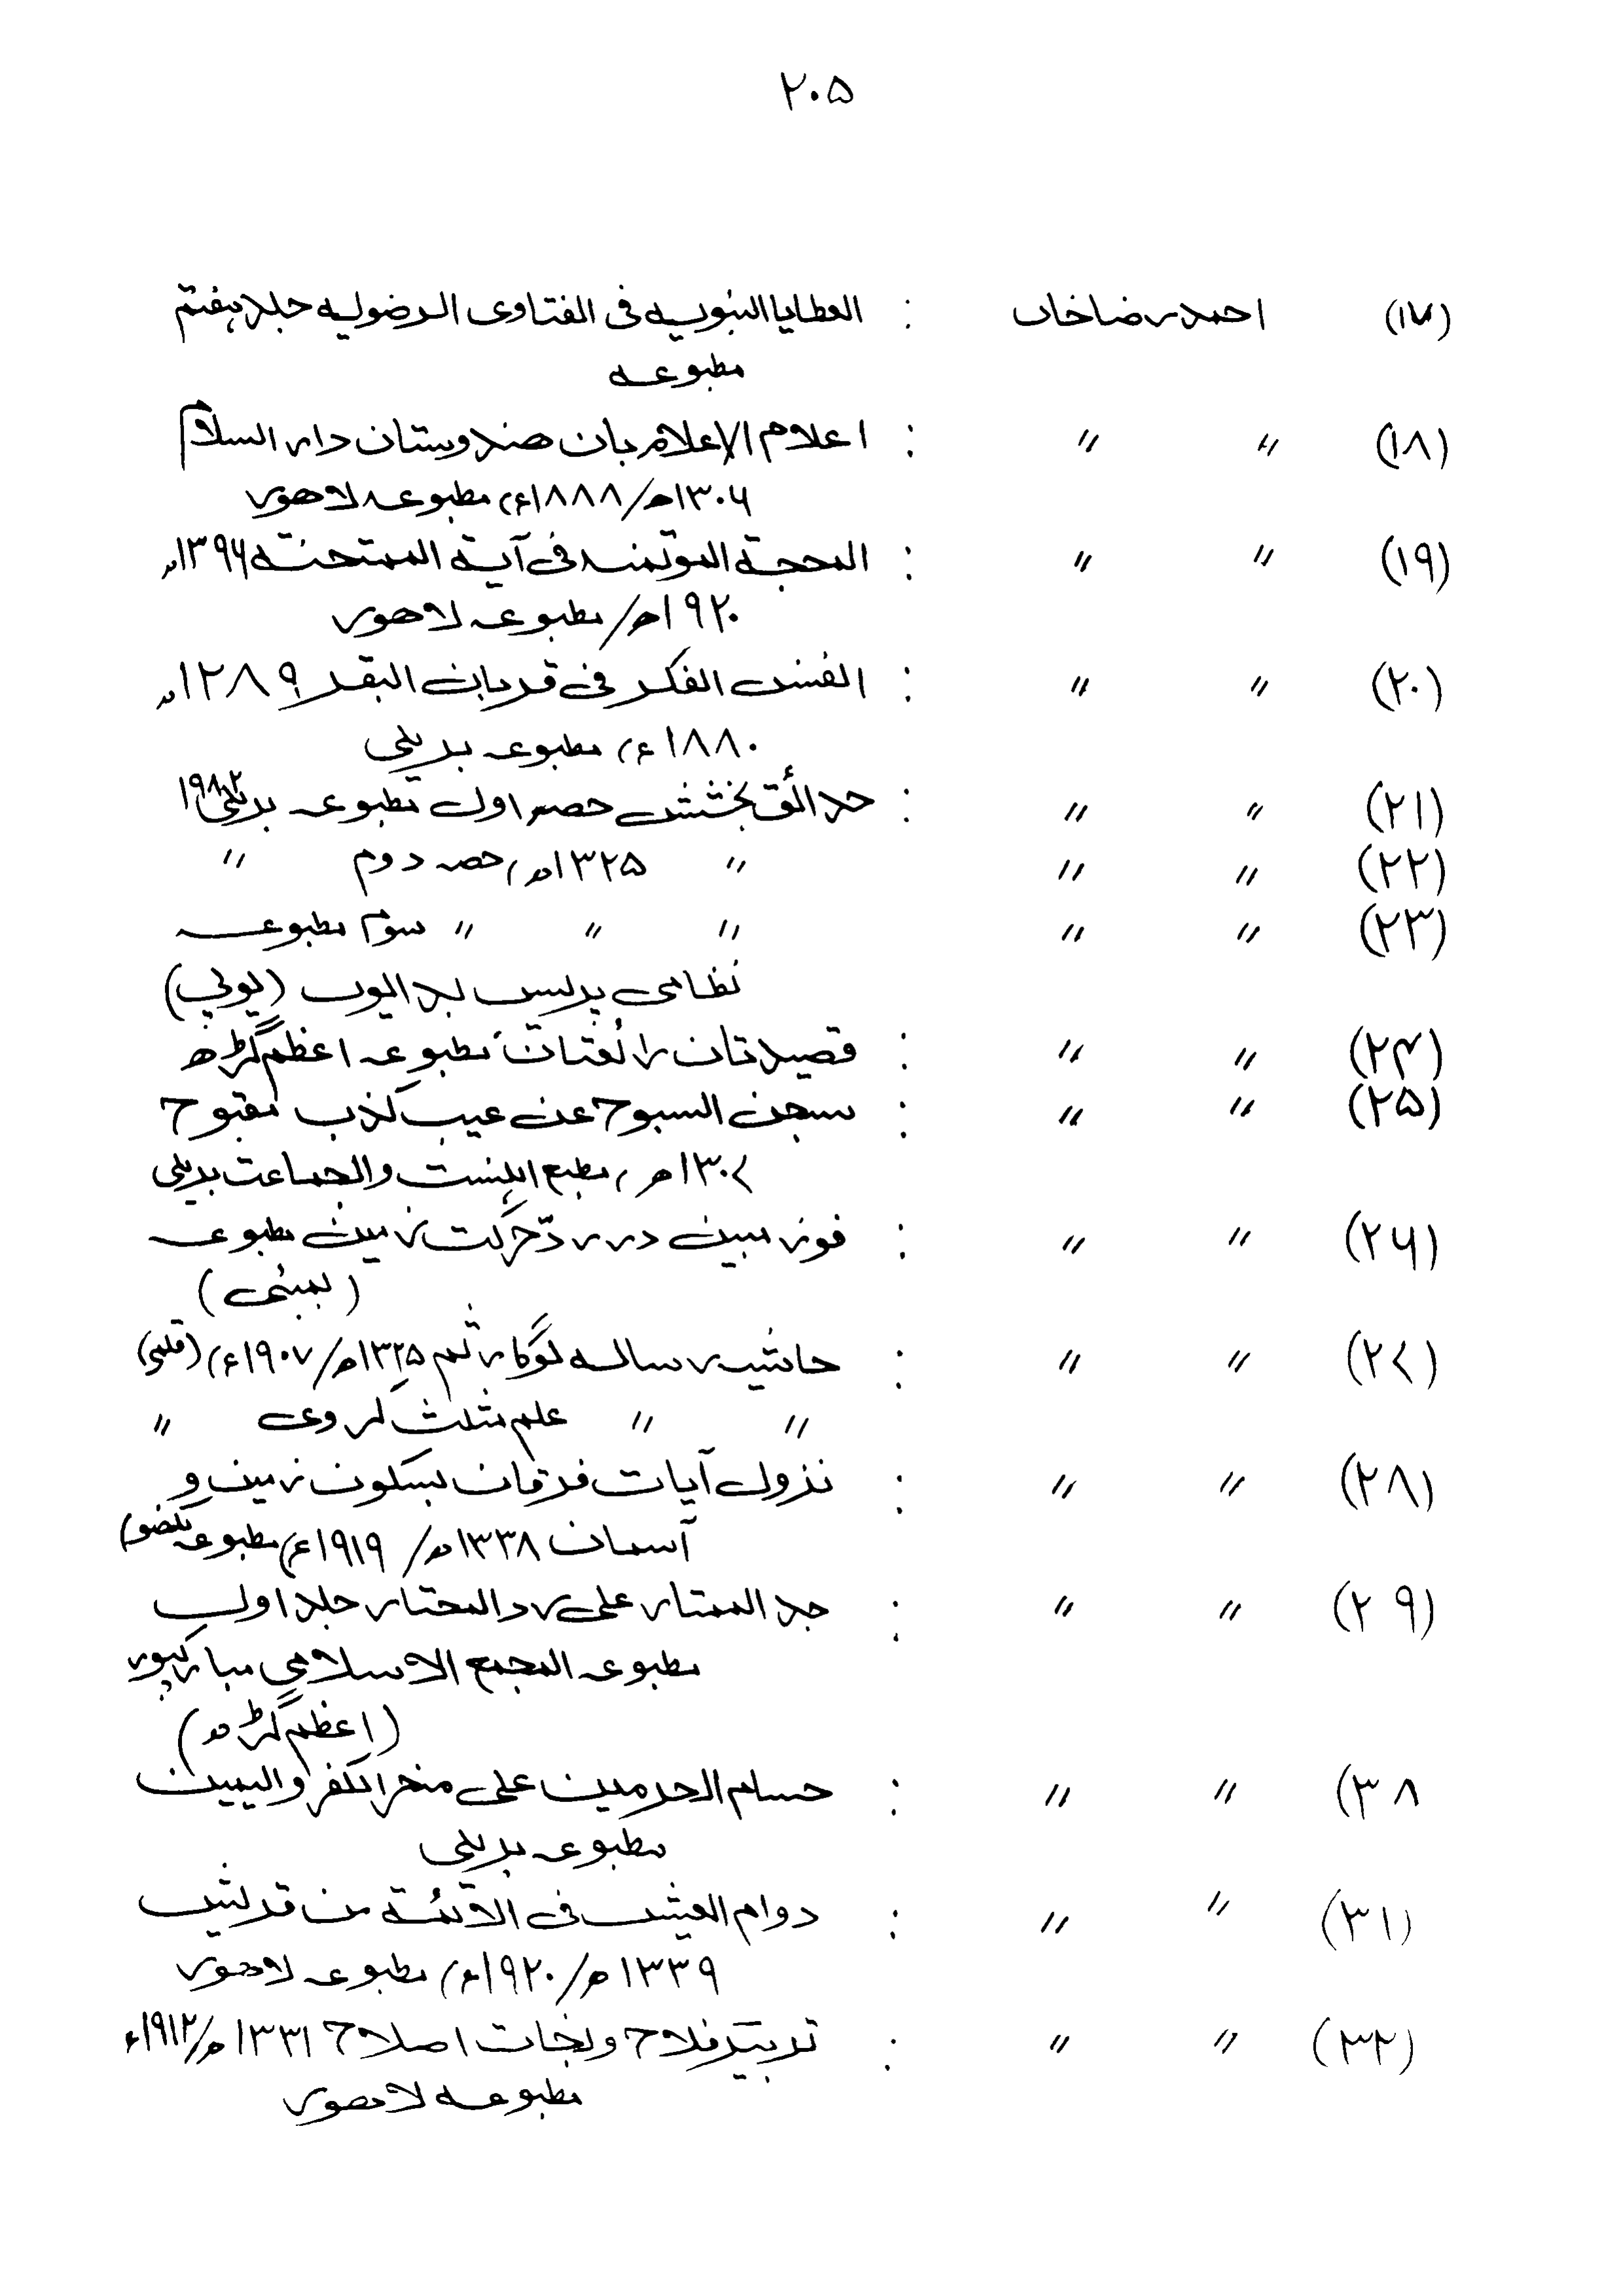 ۲۰۵
(۱۷) احمد رضا خاں : العطایا النبویہ فی الفتاوی الرضویہ جلد ہفتم
مطبوعہ
(۱۸) // // : اعلام الاعلام بان ھندوستان دار السلام
۱۳۰۶ھ/۱۸۸۸ء، مطبوعہ لاھور
(۱۹) // // : المحجة المؤتمنہ فی آیة الممتحنة ۱۳۹۶ھ
۱۹۲۰ھ/ مطبوعہ لاھور
(۲۰) // // : انفس الفکر فی قربان البقر ۱۲۸۹ھ
۱۸۸۰ء، مطبوعہ بریلی
(۲۱) // // : حدائق بخشش حصہ اول مطبوعہ بریلی ۱۹۸۲
(۲۲) // // // ۱۳۲۵ھ، حصہ دوم //
(۲۳) // // // // // سوم مطبوعہ
نظامی پریس بدایوں (یوپی)
(۲۴) // // : قصیدتان رائعتان، مطبوعہ اعظم گڑھ
(۲۵) // // : سبحن السبوح عن عیب کذب مقبوح
۱۳۰۷ھ، مطبع اہلسنت والجماعت بریلی
(۲۶) // // : فوز مبین در ردّ حرکت زمین مطبوعہ
(بمبئی)
(۲۷) // // : حاشیہ رسالہ لوگارثم ۱۳۲۵ھ/۱۹۰۷ء، (قلمی)
// // علم مثلث کروی //
(۲۸) // // : نزول آیات فرقان بسکون زمین و
آسمان ۱۳۳۸ھ/ ۱۹۱۹ء، مطبوعہ لکھنو)
(۲۹) // // : جد الممتار علی رد المحتار جلد اول
مطبوعہ المجمع الاسلامی مبارکپور
(اعظم گڑھ)
۳۸) // // : حسام الحرمین علی منحر الکفر والیمین
مطبوعہ بریلی
(۳۱) // // : دوام العیش فی الائمة من قریش
۱۳۳۹ھ/۱۹۲۰ء، مطبوعہ لاھور
(۳۲) // // : تدبیر فلاح ونجات اصلاح ۱۳۳۱ھ/۱۹۱۲ء
مطبوعہ لاھور